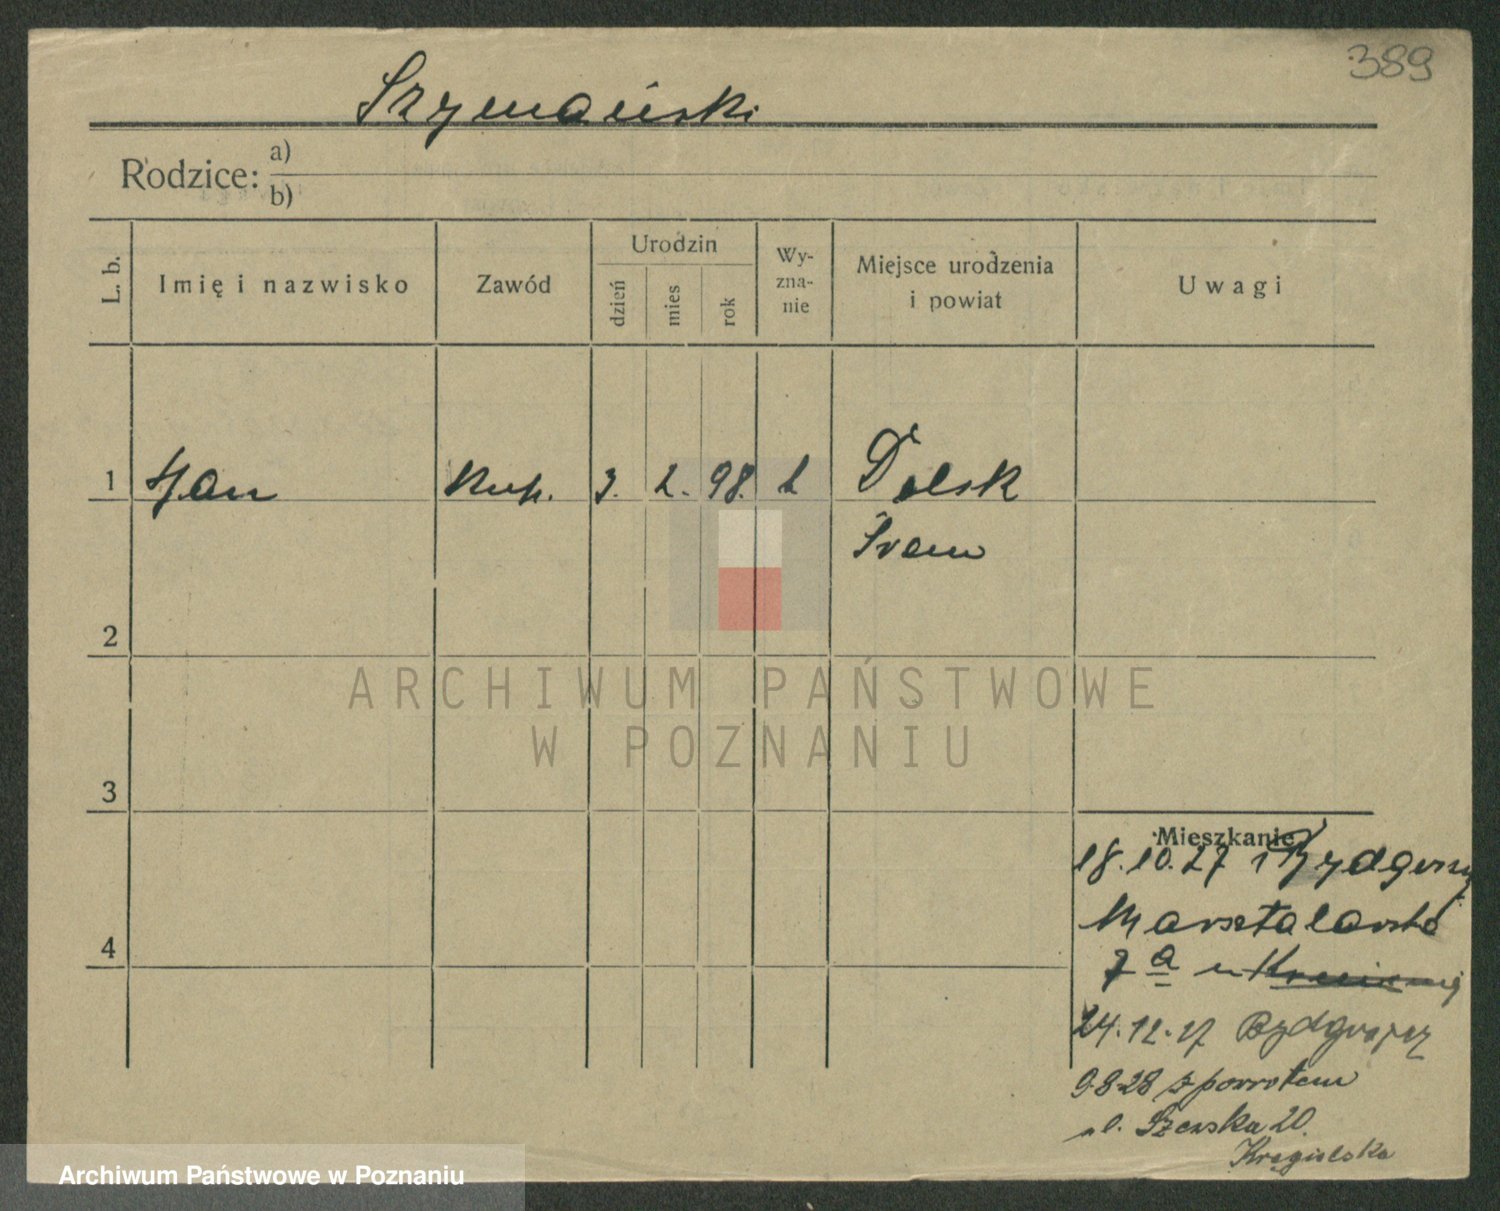 389
Szymański
Rodzice: a)
b)
L. b.
Imię i nazwisko
Zawód
Urodzin
dzień
mies
rok
Wy-
zna-
nie
Miejsce urodzenia
i powiat
Uwagi
1 Jan Kup. 3. 2. 98. k Dolsk
Śrem
2
3
4
Mieszkanie
18.10.27 z Bydgoszcz
Marsztalarska
7 a u
24.12.27 Bydgoszcz
9.8.28 z powrotem
ul. Szewska 20.
ARCHIWUM PAŃSTWOWE
W POZNANIU
Archiwum Państwowe w Poznaniu